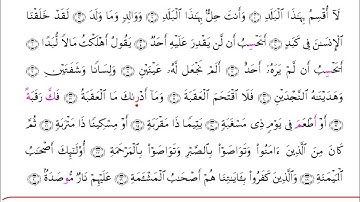 لَآ أُقۡسِمُ بِهَٰذَا ٱلۡبَلَدِ ۝ وَأَنتَ حِلُّۢ بِهَٰذَا ٱلۡبَلَدِ ۝ وَوَالِدٖ وَمَا وَلَدَ ۝ لَقَدۡ خَلَقۡنَا
ٱلۡإِنسَٰنَ فِي كَبَدٍ ۝ أَيَحۡسِبُ أَن لَّن يَقۡدِرَ عَلَيۡهِ أَحَدٞ ۝ يَقُولُ أَهۡلَكۡتُ مَالٗا لُّبَدًا ۝
أَيَحۡسِبُ أَن لَّمۡ يَرَهُۥٓ أَحَدٌ ۝ أَلَمۡ نَجۡعَل لَّهُۥ عَيۡنَيۡنِ ۝ وَلِسَانٗا وَشَفَتَيۡنِ ۝
وَهَدَيۡنَٰهُ ٱلنَّجۡدَيۡنِ ۝ فَلَا ٱقۡتَحَمَ ٱلۡعَقَبَةَ ۝ وَمَآ أَدۡرَىٰكَ مَا ٱلۡعَقَبَةُ ۝ فَكَّ رَقَبَةً
۝ أَوۡ أَطۡعَمَ فِي يَوۡمٖ ذِي مَسۡغَبَةٖ ۝ يَتِيمٗا ذَا مَقۡرَبَةٍ ۝ أَوۡ مِسۡكِينٗا ذَا مَتۡرَبَةٖ ۝ ثُمَّ
كَانَ مِنَ ٱلَّذِينَ ءَامَنُواْ وَتَوَاصَوۡاْ بِٱلصَّبۡرِ وَتَوَاصَوۡاْ بِٱلۡمَرۡحَمَةِ ۝ أُوْلَٰٓئِكَ أَصۡحَٰبُ
ٱلۡمَيۡمَنَةِ ۝ وَٱلَّذِينَ كَفَرُواْ بِـَٔايَٰتِنَا هُمۡ أَصۡحَٰبُ ٱلۡمَشۡـَٔمَةِ ۝ عَلَيۡهِمۡ نَارٞ مُّوصَدَةُۢ ۝